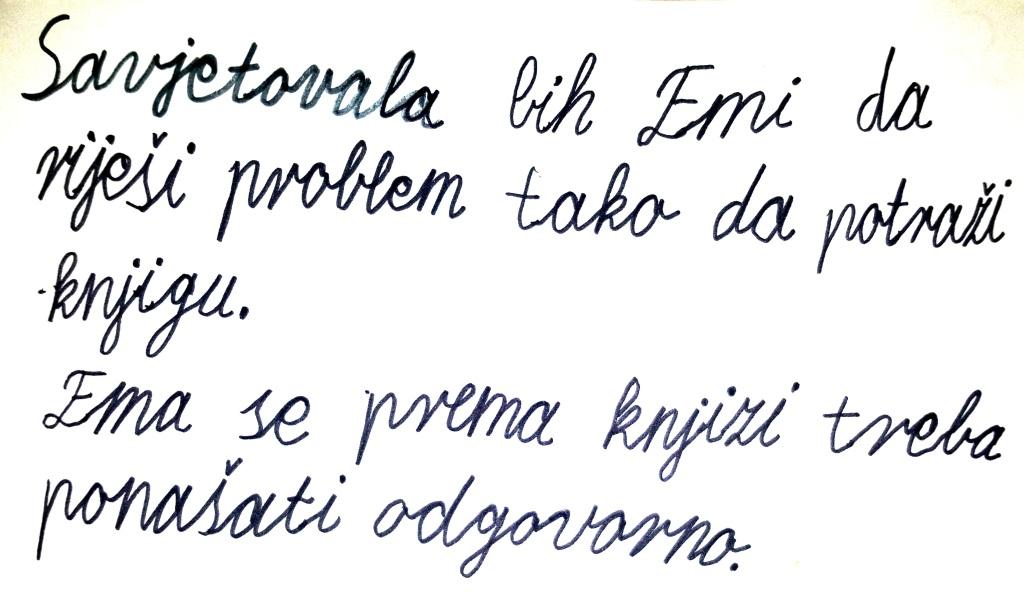 Savjetovala bih Emi da
riješi problem tako da potraži
knjigu.
Ema se prema knjizi treba
ponašati odgovorno.